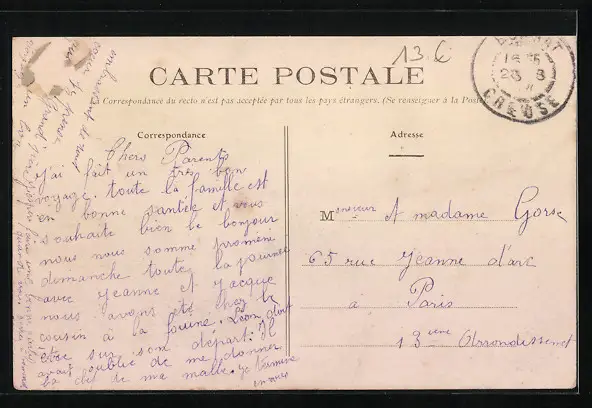 13 €
CARTE POSTALE
La Correspondance du recto n'est pas acceptée par tous les pays étrangers. (Se renseigner à la Poste
Correspondance
Adresse
16
CREUSE
Chers Parents
J'ai fait un très bon
voyage. toute la famille est
en bonne santée et vous
souhaite bien le bonjour
nous nous somme promené
dimanche toute la journée
avec Jeanne et Jacque
nous avons été chez le
cousin à la fouine. Léon doit
etre sur son départ. Il
avait oublié de me donner
la clef de ma malle. je termine
en vous
embrassant de tout
Monsieur et madame Gorse
65 rue Jeanne d'arc
a Paris
13 ieme Arrondissement